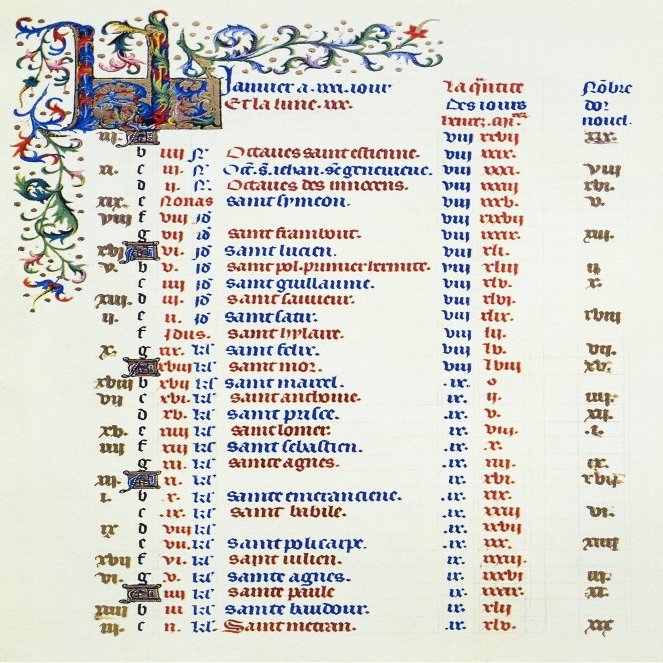 Januier a .xxxi. iour La q̃ntite Nõbre
Et la lune .xxx. Des iours dor
nouel.
iii. viii xxvii xix.
b iiii N᷒ Octaues saint estienne. viii xxix.
xi. c iii. N᷒ Oct. s. iehan. ste geneuieue. viii xxxi. viii
d ii. N᷒ Octaues des innocens. viii xxxiii xvi.
xix. e Nonas saint symeon. viii xxxv. v.
viii f viii jd viii xxxvii
g vii jd saint frambout. viii xxxix. xiii.
xvi vi. jd saint lucien. viii xli. ii
v. b v. jd saint pol. premier hermite. viii xliii
c iiii jd saint guillaume. viii xlv. x.
xiii. d iii. jd saint sauueur. viii xlvi.
ii. e ii. jd saint satir. viii xlix. xviii
f Jdus. saint hylaire. viii lii.
x. g xix. kl saint felix. viii lv. vii.
xviii kl saint mor. viii lviii xv.
xviii b xvii kl saint marcel. .ix. o
vii c xvi. kl saint anthoine. .ix. ii. iiii.
d xv. kl saint prisce. .ix. v. xii.
xv. e xiiii kl saint lomer. .ix. viii. .i.
iiii f xiii kl saint sebastien. .ix. x.
g xii. kl sainte agnes. .ix. xiii. ix.
xii. xi. kl .ix. xvi. xvii
i. b x. kl sainte emerancienne. .ix. xix.
c .ix. kl saint babile. .ix. xxiii vi.
ix d viii kl .ix. xxvii
e vii. kl saint policarpe. .ix. xxx. xiiii
xvii f vi. kl saint iulien. .ix. xxxiii.
vi. g v. kl sainte agnes. .ix. xxxvi iii.
iiii kl sainte paule .ix. xxxix. xi.
xiiii b iii kl sainte baudour. .ix. xlii
iii. c ii. kl. Saint metran. .ix. xlv. xix